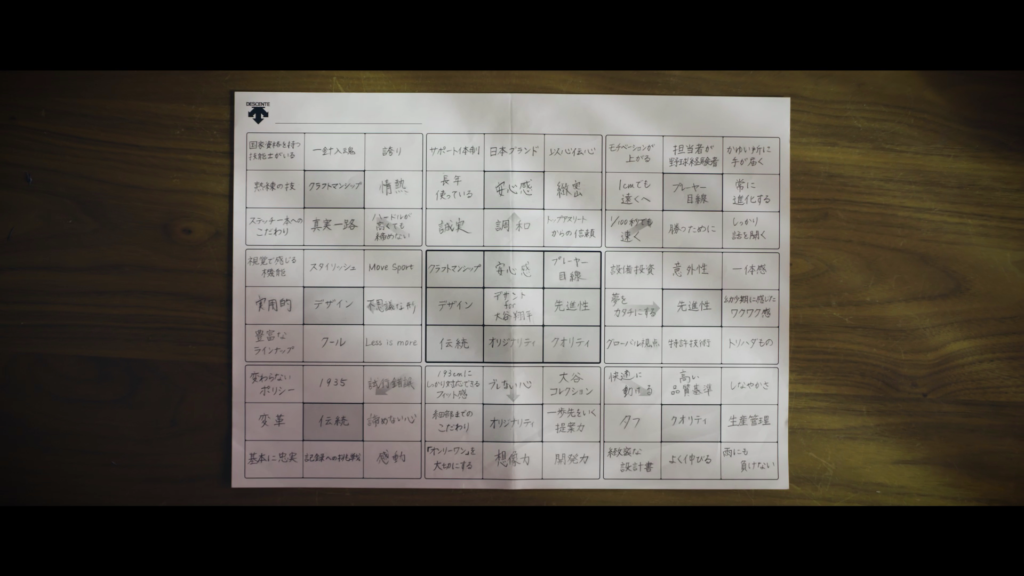 DESCENTE
国家資格を持つ
技能士がいる
一針入魂
誇り
サポート体制
日本ブランド
以心伝心
モチベーションが
上がる
担当者が
野球経験者
かゆい所に
手が届く
熟練の技
クラフトマンシップ
情熱
長年
使っている
安心感
1cmでも
遠くへ
プレーヤー
目線
常に
進化する
ステッチ一本への
こだわり
真実一路
ハードルが
高くても
諦めない
誠実
調和
トップアスリート
からの信頼
速く
勝つために
しっかり
話を聞く
視覚で感じる
機能
スタイリッシュ
Move Sport
クラフトマンシップ
安心感
プレーヤー
目線
設備投資
意外性
一体感
実用的
デザイン
不思議な形
デザイン
デサント
大谷翔平
先進性
夢を
カタチにする
先進性
ワクワク感
豊富な
ラインナップ
クール
Less is more
伝統
オリジナリティ
クオリティ
グローバル視点
特許技術
トリハダもの
変わらない
ポリシー
1935
193cmに
しっかり対応できる
フィット感
ブレない心
大谷
コレクション
快適に
動ける
高い
品質基準
しなやかさ
変革
伝統
諦めない心
こだわり
オリジナリティ
一歩先をいく
提案力
タフ
クオリティ
生産管理
基本に忠実
記録への挑戦
感動
「オンリーワン」を
大切にする
想像力
開発力
緻密な
設計書
よく伸びる
雨にも
負けない